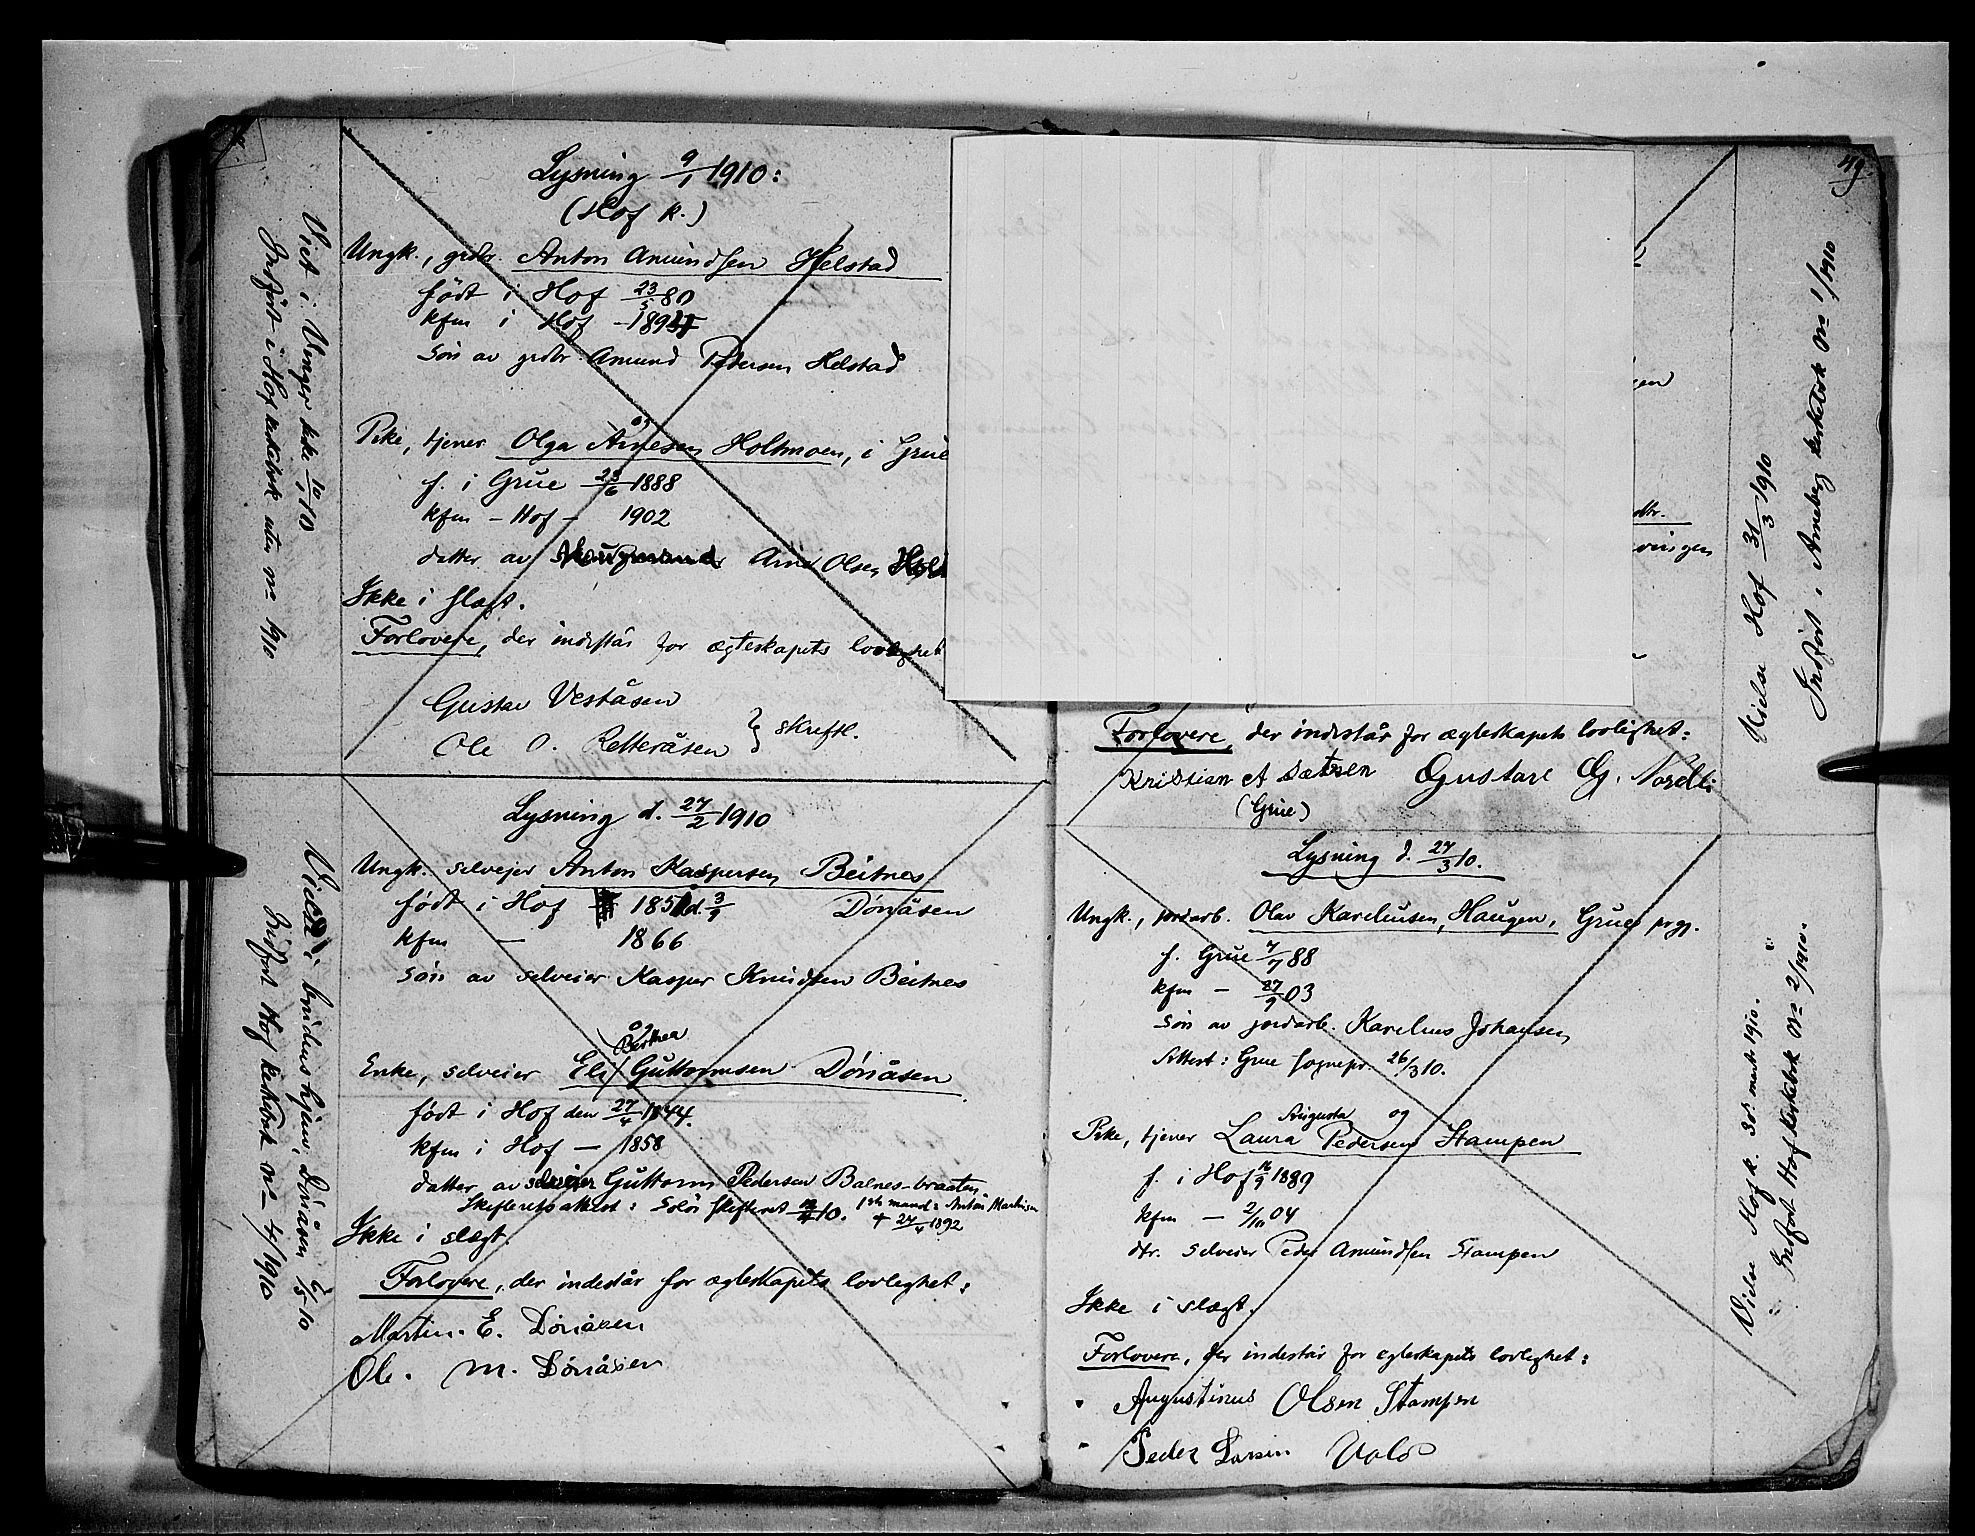 Lysning 9/1 1910:
(Hof k.)
Ungk., grdbr. Anton Amundsen Helstad
født i Hof 23/5 80
kfm i Hof - 189
Søn av grdbr. Amund Pedersen Helstad
og
Pike, tjener Olga Arnesen Holtmoen, i Grue
f. i Grue 6 1888
kfm - Hof - 1902
datter av Arne Olsen
Ikke i slægt.
Forlovere, der indestår for ægteskapets lovlighet
Gustav Veståsen
Ole O. Retteråsen } skriftl.
Viet i Vinger kirke 10/1 10
Indført i Hof kirkebok uten No 1910
Lysning d. 27/2 1910
Ungk. selveier Anton Kaspersen Beitnes
født i Hof 1851 d. 3/9 Dönåsen
kfm - 1866
søn av selveier Kasper Knudsen Beitnes
og
Berthea
Enke, selveier Eli Guttormsen Dönåsen
født i Hof den 27/4 1844.
kfm i Hof - 1858
datter av selveier Guttorm Pedersen Balnes-braaten
Skifteretsattest: Solør skifteret 10. 1ste mand: Anton Martinsen
† 27/4 1892
Ikke i slægt.
Forlovere, der indestår for ægteskapets lovlighet:
Martin. E. Dönåsen
Ole. M. Dönåsen
Viede i brudens hjem, Dönåsen /5 10
Indført Hof kirkebok No 4/1910
49.
gen
dtr.
vingen
Forlovere, der indestår for ægteskapets lovlighet:
Kristian A Sætren Gustav G. Nordli
(Grue)
Vielse Hof 31/3 1910
Indført i Arneberg kirkebok No 1/1910
Lysning d. 27/3 10.
Ungk., jordarb. Olav Kareliusen, Haugen, Grue prgj.
f. Grue 7/7 88
kfm - 27/9 03
Søn av jordarb. Karelius Johansen
Attest: Grue sognepr. 26/3 10.
Augusta og
Pike, tjener Laura Pedersen Stampen
f. i Hof 16/9 1889
kfm - 2/10 04
dtr. selveier Peder Amundsen Stampen
Ikke i slægt.
Forlovere, der indestår for ægteskapets lovlighet:
Augustinus Olsen Stampen
Peder Larsen
Vielse Hof k. 30te marts 1910.
Indført Hof kirkebok No 2/1910.